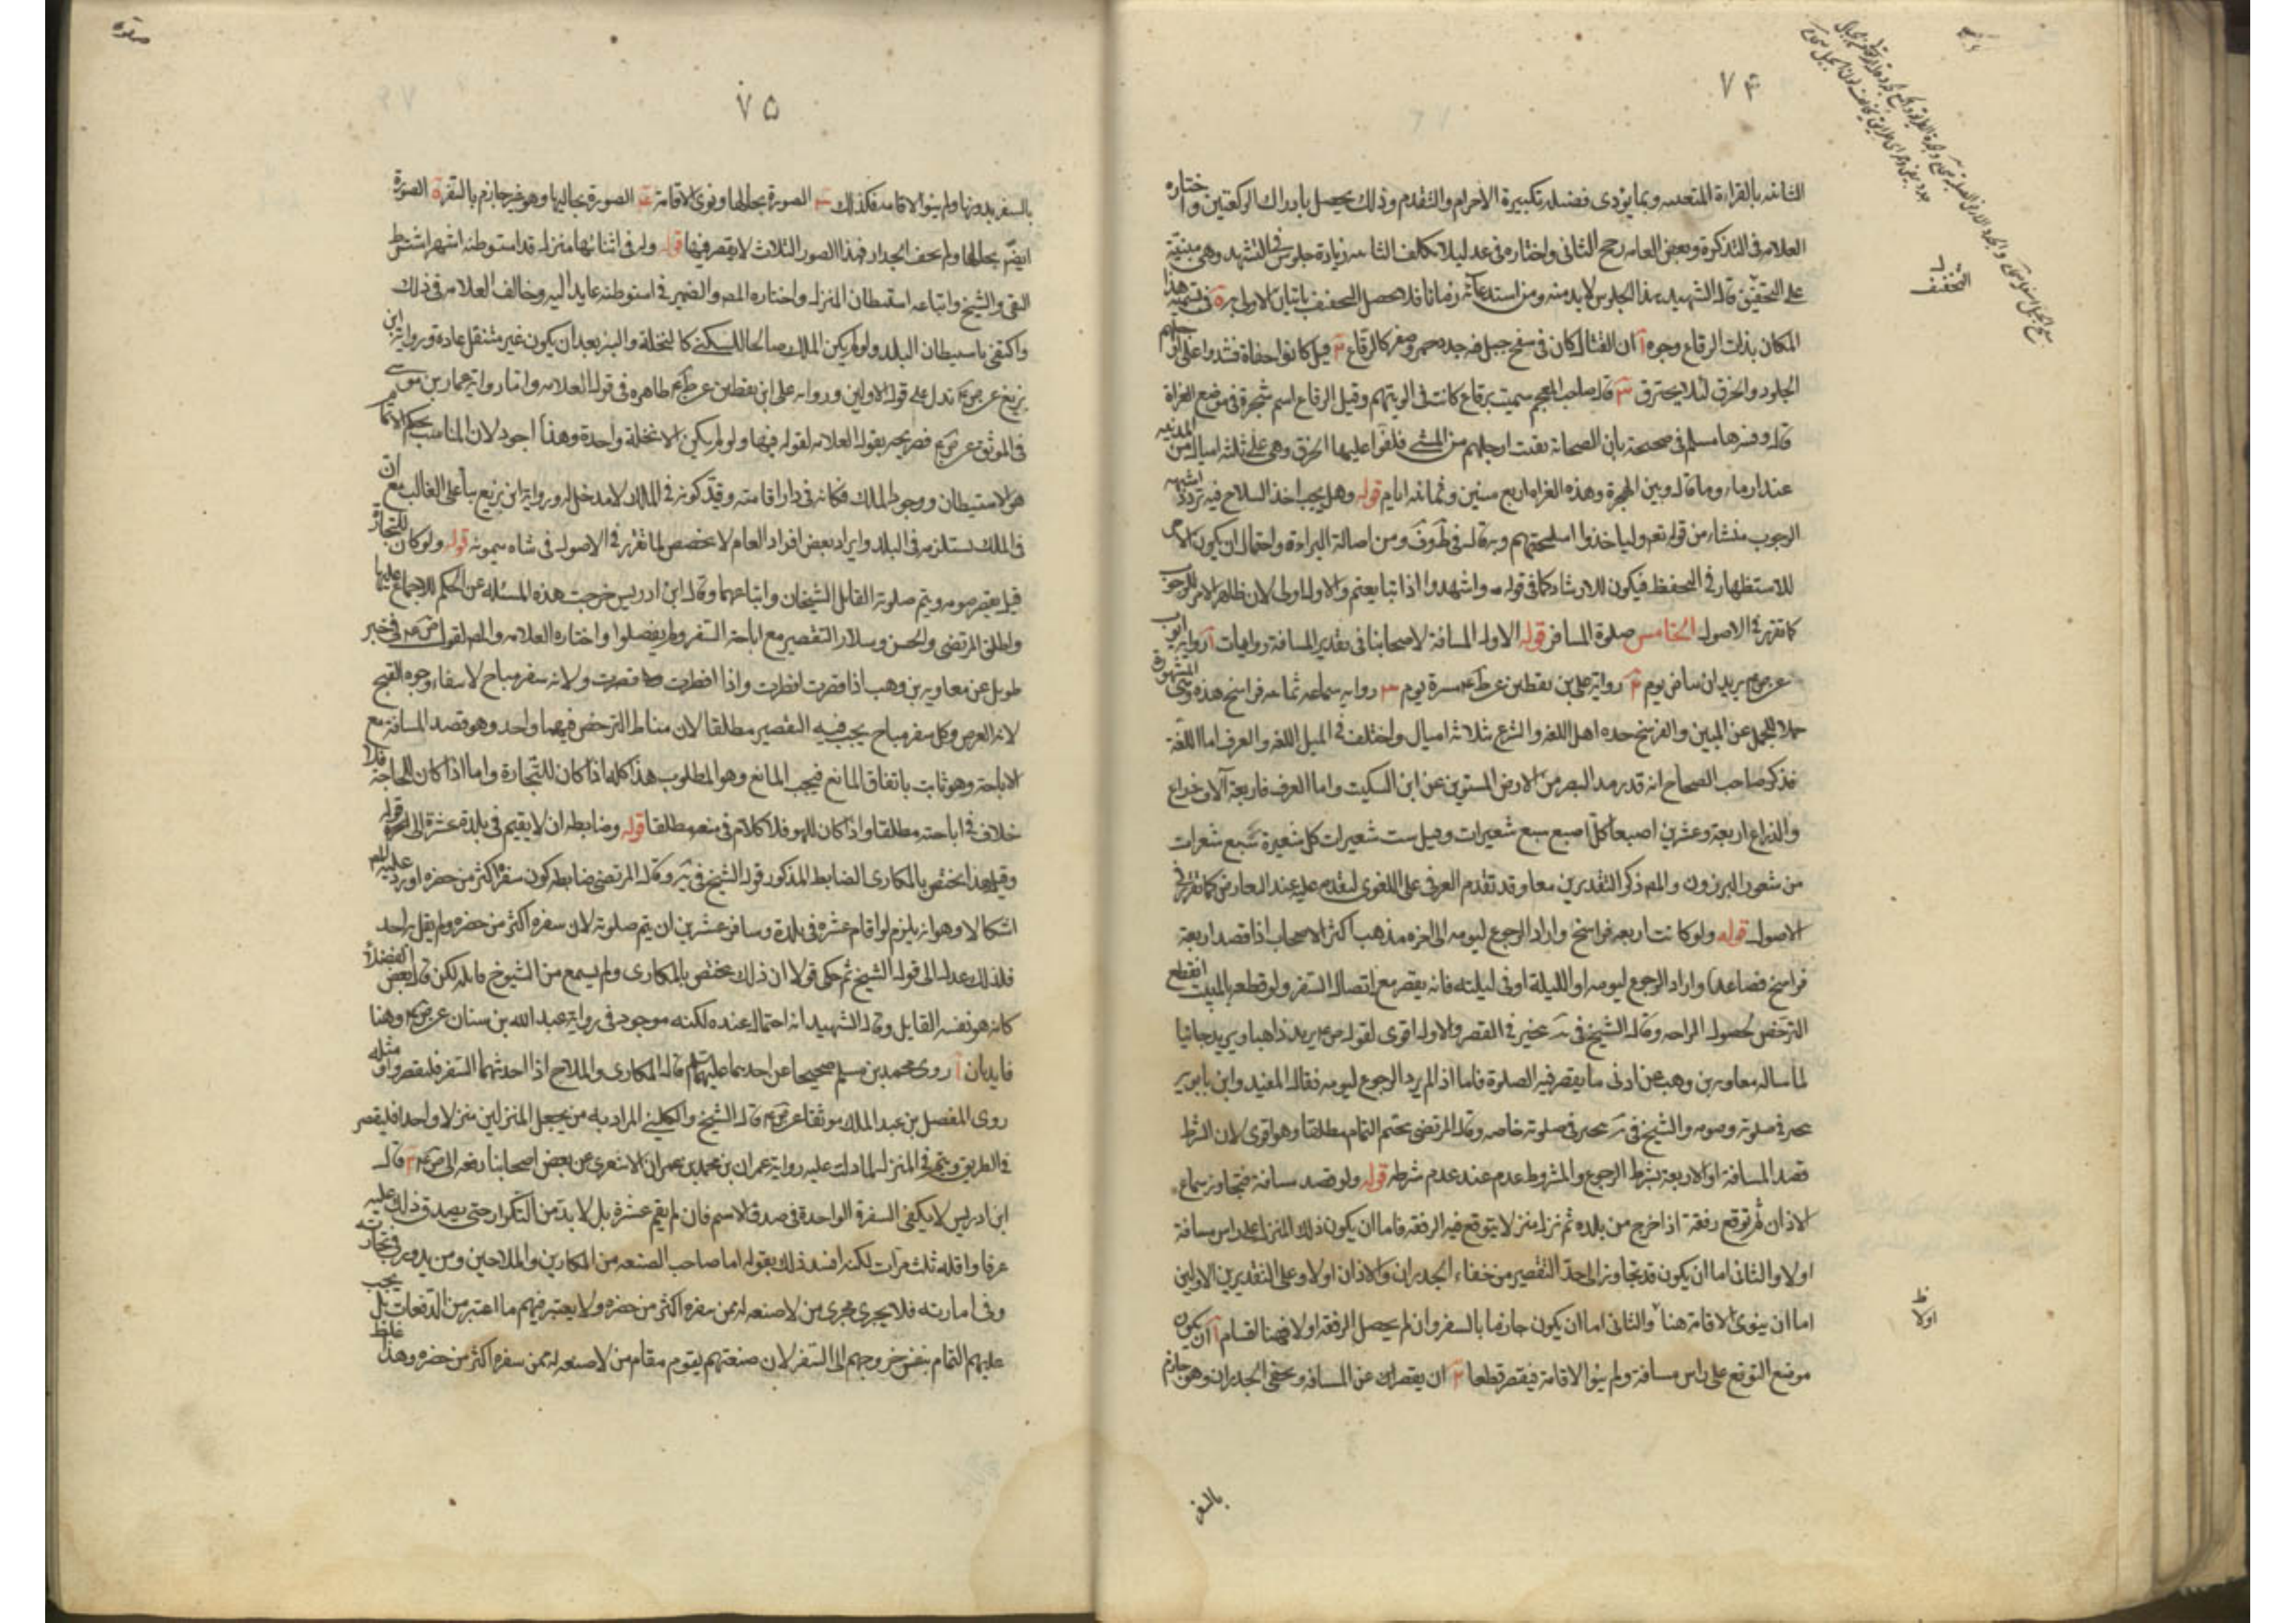 ٧۴
الثانية بالقراءة المتعينة وبما يؤدى فضيلة تكبيرة الاحرام والتقدم وذلك يحصل بادراك الركعتين واختاره
العلامه فى التذكرة وبعض العامه رجح الثانى واختاره فى عد لئلا يكلف الثانيه زيادة جلوس فى التشهد وهى مبنية
على التخفيف قال الشهيد هذا الجلوس لابد منه
المكان بذات الرقاع وجوه آ ان القتال كان فى سفح جبل فيه جدد حمر وصفر كالرقاع ٢ قيل كانوا حفاة فشدوا على ارجلهم
الجلود والخرق لئلا يحترق ٣ قال صاحب المعجم سميت برقاع كانت فى الويتهم وقيل الرقاع اسم شجرة فى موضع الغزاة
قال وفسرها مسلم فى صحيحه بان الصحابة نقبت ارجلهم من المشى فلفوا عليها الخرق وهى على ثلثه اميال من المدينه
عند ارما وما قال وبين الهجرة وهذه الغزاه اربع سنين وثمانيه ايام قوله وهل يجب اخذ السلاح فيه تردد اشبهه
الوجوب منشاء من قوله تعم ولياخذوا اسلحتهم وبه قال فى ط وف ومن اصالة البراءة واحتمال ان يكون الامر
للاستظهار فى التحفظ فيكون للارشاد كما فى قوله واشهدوا اذا تبايعتم والاول اولى لان ظاهر الامر للوجوب
كما تقرر فى الاصول الخامس صلوة المسافر قوله الاول المسافة لاصحابنا فى تقدير المسافة روايات آ رواية ابى ايوب
عن ص م بريدان بياض يوم ٢ رواية على بن يقطين عن ظ م مسيرة يوم ٣ رواية سماعه ثمانيه فراسخ هذه وهى المشهورة
حملا للمجمل على المبين والفرسخ حده اهل اللغه والشرع ثلاثه اميال واختلف فى الميل اللغه والعرف اما اللغة
فذكر صاحب الصحاح انه قدر مد البصر من الارض المستوى عن ابن السكيت واما العرف فاربعة آلاف ذراع
والذراع اربعة وعشرين اصبعا كل اصبع سبع شعيرات وقيل ست شعيرات كل شعيرة سبع شعرات
من شعور البرزون والمص ذكر التقديرين معا وقد تقدم العرفى على اللغوى لتقدمه عليه عند التعارض كما تقرر فى
الاصول قوله ولو كانت اربعه فراسخ واراد الرجوع ليومه الى اخره مذهب اكثر الاصحاب اذا قصد اربعة
فراسخ فصاعدا واراد الرجوع ليومه او الليلة او فى ليلته فانه يقصر مع اتصال السفر ولو قطعه بالمبيت انقطع
الترخص لحصول الراحه وقال الشيخ فى يه يتخير فى القصر والاول اقوى لقوله ص م بريد ذاهبا وبريد جائيا
لما ساله معاويه بن وهب عن ادنى ما يقصر فيه الصلوة فاما اذا لم يرد الرجوع ليومه فقال المفيد وابن بابويه
يتخير فى صلوته وصومه والشيخ فى يه يتخير فى صلوته خاصه وقال المرتضى يتحتم التمام مطلقا وهو اقوى لان الشرط
قصد المسافة او الاربعة بشرط الرجوع والمشروط عدم عند عدم شرطه قوله ولو قصد مسافة فتجاوز سماع
الاذان ثم توقع رفقة اذا خرج من بلده ثم نزل منزلا يتوقع فيه الرفقه فاما ان يكون ذلك المنزل على راس مسافة
اولا والثانى اما ان يكون قد تجاوز الى حد التقصير من خفاء الجدران والاذان اولا وعلى التقديرين الاولين
اما ان ينوى الاقامة هنا والثانى اما ان يكون جازما بالسفر وان لم يحصل الرفقه اولا فهنا اقسام آ ان يكون
موضع التوقع على راس مسافة ولم ينو الاقامة فيقصر قطعا ٢ ان يقصر ذلك عن المسافة ويخفى الجدران وهو جازم
التخفيف
اولا ظ
بالسفر
٧۵
بالسفر بدونها ولم ينو الاقامه فكذلك ٣ الصورة بحالها ونوى الاقامة ۴ الصورة بحاليها وهو غير جازم بالسفر ۵ الصورة
ايضا بحالها ولم يخف الجدار فهذه الصور الثلاث لا يقصر فيها قوله وله فى اثنائها منزل قد استوطنه اشهر اشترط
التقى والشيخ واتباعه استيطان المنزل واختاره المص والضمير فى استوطنه عايد اليه وخالف العلامه فى ذلك
واكتفى باستيطان البلد ولو لم يكن الملك صالحا للسكنى كالنخلة والبئر بعد ان يكون غير متنقل عادة ورواية ابن
بزيع عن ص م تدل على قوله الاولين وروايه على ابن يقطين عن ظ م ظاهره فى قول العلامه واما رواية عمار بن موسى
فى الموثق عن ص م فصريحه بقول العلامه لقوله فيها ولو لم يكن الا نخلة واحدة وهذا اجود لان المناسب لحكم الاتمام
هو الاستيطان ووجود الملك فكانه فى دار اقامته وقيد كونه فى الملك لا مدخل له ورواية ابن بزيع بناء على الغالب مع ان
فى الملك يستلزمه فى البلد وايراد بعض افراد العام لا يخصص لما تقرر فى الاصول فى شاة ميمونه قوله ولو كان للتجارة
قيل يقصر صومه ويتم صلوته القايل الشيخان واتباعهما وقال ابن ادريس خرجت هذه المسئله عن الحكم للاجماع عليها
واطلق المرتضى والحسن وسلار التقصير مع اباحة السفر ولم يفصلوا واختاره العلامه والمص لقول ص م فى خبر
طويل عن معاويه بن وهب اذا قصرت افطرت واذا افطرت قصرت ولانه سفر مباح لانتفاء وجوه القبح
لانه الغرض وكل سفر مباح يجب فيه التقصير مطلقا لان مناط الترخص فيهما واحد وهو قصد المسافة مع
الاباحة وهو ثابت باتفاق المانع فيجب المانع وهو المطلوب هذا كله اذا كان للتجارة واما اذا كان للحاجة فلا
خلاف فى اباحته مطلقا واذا كان للهو فلا كلام فى منعه مطلقا قوله وضابطه ان لا يقيم فى بلدة عشرة الى قوله
وقيل هذا يختص بالمكارى الضابط المذكور قول الشيخ فى يه وقال المرتضى ضابطه كون سفره اكثر من حضره اورد عليه المص
اشكالا وهو انه يلزم لو اقام عشره فى بلدة وسافر عشرين ان يتم صلوته لان سفره اكثر من حضره ولم يقل به احد
فلذلك عدل الى قول الشيخ ثم حكى قولا ان ذلك يختص بالمكارى ولم يسمع من الشيوخ قايله لكن قال بعض الفضلاء
كانه هو نفسه القايل وقال الشهيد انه احتمال عنده لكنه موجود فى رواية عبد الله بن سنان عن ص م وهنا
فايدتان آ روى محمد بن مسلم صحيحا عن احدهما عليهما السلام قال المكارى والملاح اذا جد بهما السفر فليقصروا ومثله
روى المفضل بن عبد الملك موثقا عن ص م قال الشيخ والكلينى المراد به من يجعل المنزلين منزلا واحدا فليقصر
فى الطريق ويتم فى المنزل لما دلت عليه رواية عمران بن محمد بن عمران الاشعرى عن بعض اصحابنا رفعه الى ص م ٢ قال
ابن ادريس لا يكفى السفرة الواحدة فى صدق الاسم فان لم يقم عشرة بل لابد من التكرار حتى يصدق ذلك عليه
عرفا واقله ثلث مرات لكنه افسد ذلك بقوله اما صاحب الصنعه من المكارين والملاحين ومن يدور فى تجارته
وفى امارته فلا يجرى مجرى من لا صنعه له ممن سفره اكثر من حضره ولا يعتبر فيهم ما اعتبر من الدفعات بل يجب
عليهم التمام بنفس خروجهم الى السفر لان صنعتهم يقوم مقام من لا صنعه له ممن سفره اكثر من حضره وهذا غلط